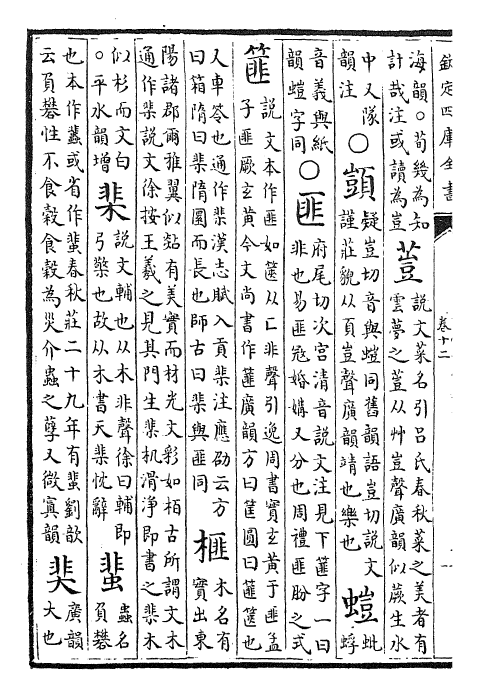 欽定四庫全書
卷十二
海韻○荀幾為知
計哉注或讀為豈
䔇
說文菜名引呂氏春秋菜之美者有
雲夢之䔇从艸豈聲廣韻似蕨生水
中又隊
韻注
○顗
疑豈切音與螘同舊韻語豈切說文
謹莊貌从頁豈聲廣韻靖也樂也
螘
蚍
蜉
音義與紙
韻螘字同
○匪
府尾切次宮清音說文注見下篚字一曰
非也易匪寇婚媾又分也周禮匪肦之式
篚
說文本作匪如篋从匚非聲引逸周書實玄黄于匪孟
子匪厥玄黄今文尚書作篚廣韻方曰筐圓曰篚篋也
又車笭也通作棐漢志賦入貢棐注應劭云方
曰箱隋曰棐隋圜而長也師古曰棐與匪同
榧
木名有
實出東
陽諸郡爾雅翼似煔有美實而材光文彩如栢古所謂文木
通作棐說文徐按王羲之見其門生棐机滑浄即書之棐木
似杉而文白
○平水韻增
棐
說文輔也从木非聲徐曰輔即
弓檠也故从木書天棐忱辭
蜚
蟲名
負礬
也本作𧕿或省作蜚春秋莊二十九年有蜚劉歆
云負礬性不食穀食穀為災介蟲之孽又微寘韻
奜
廣韻
大也